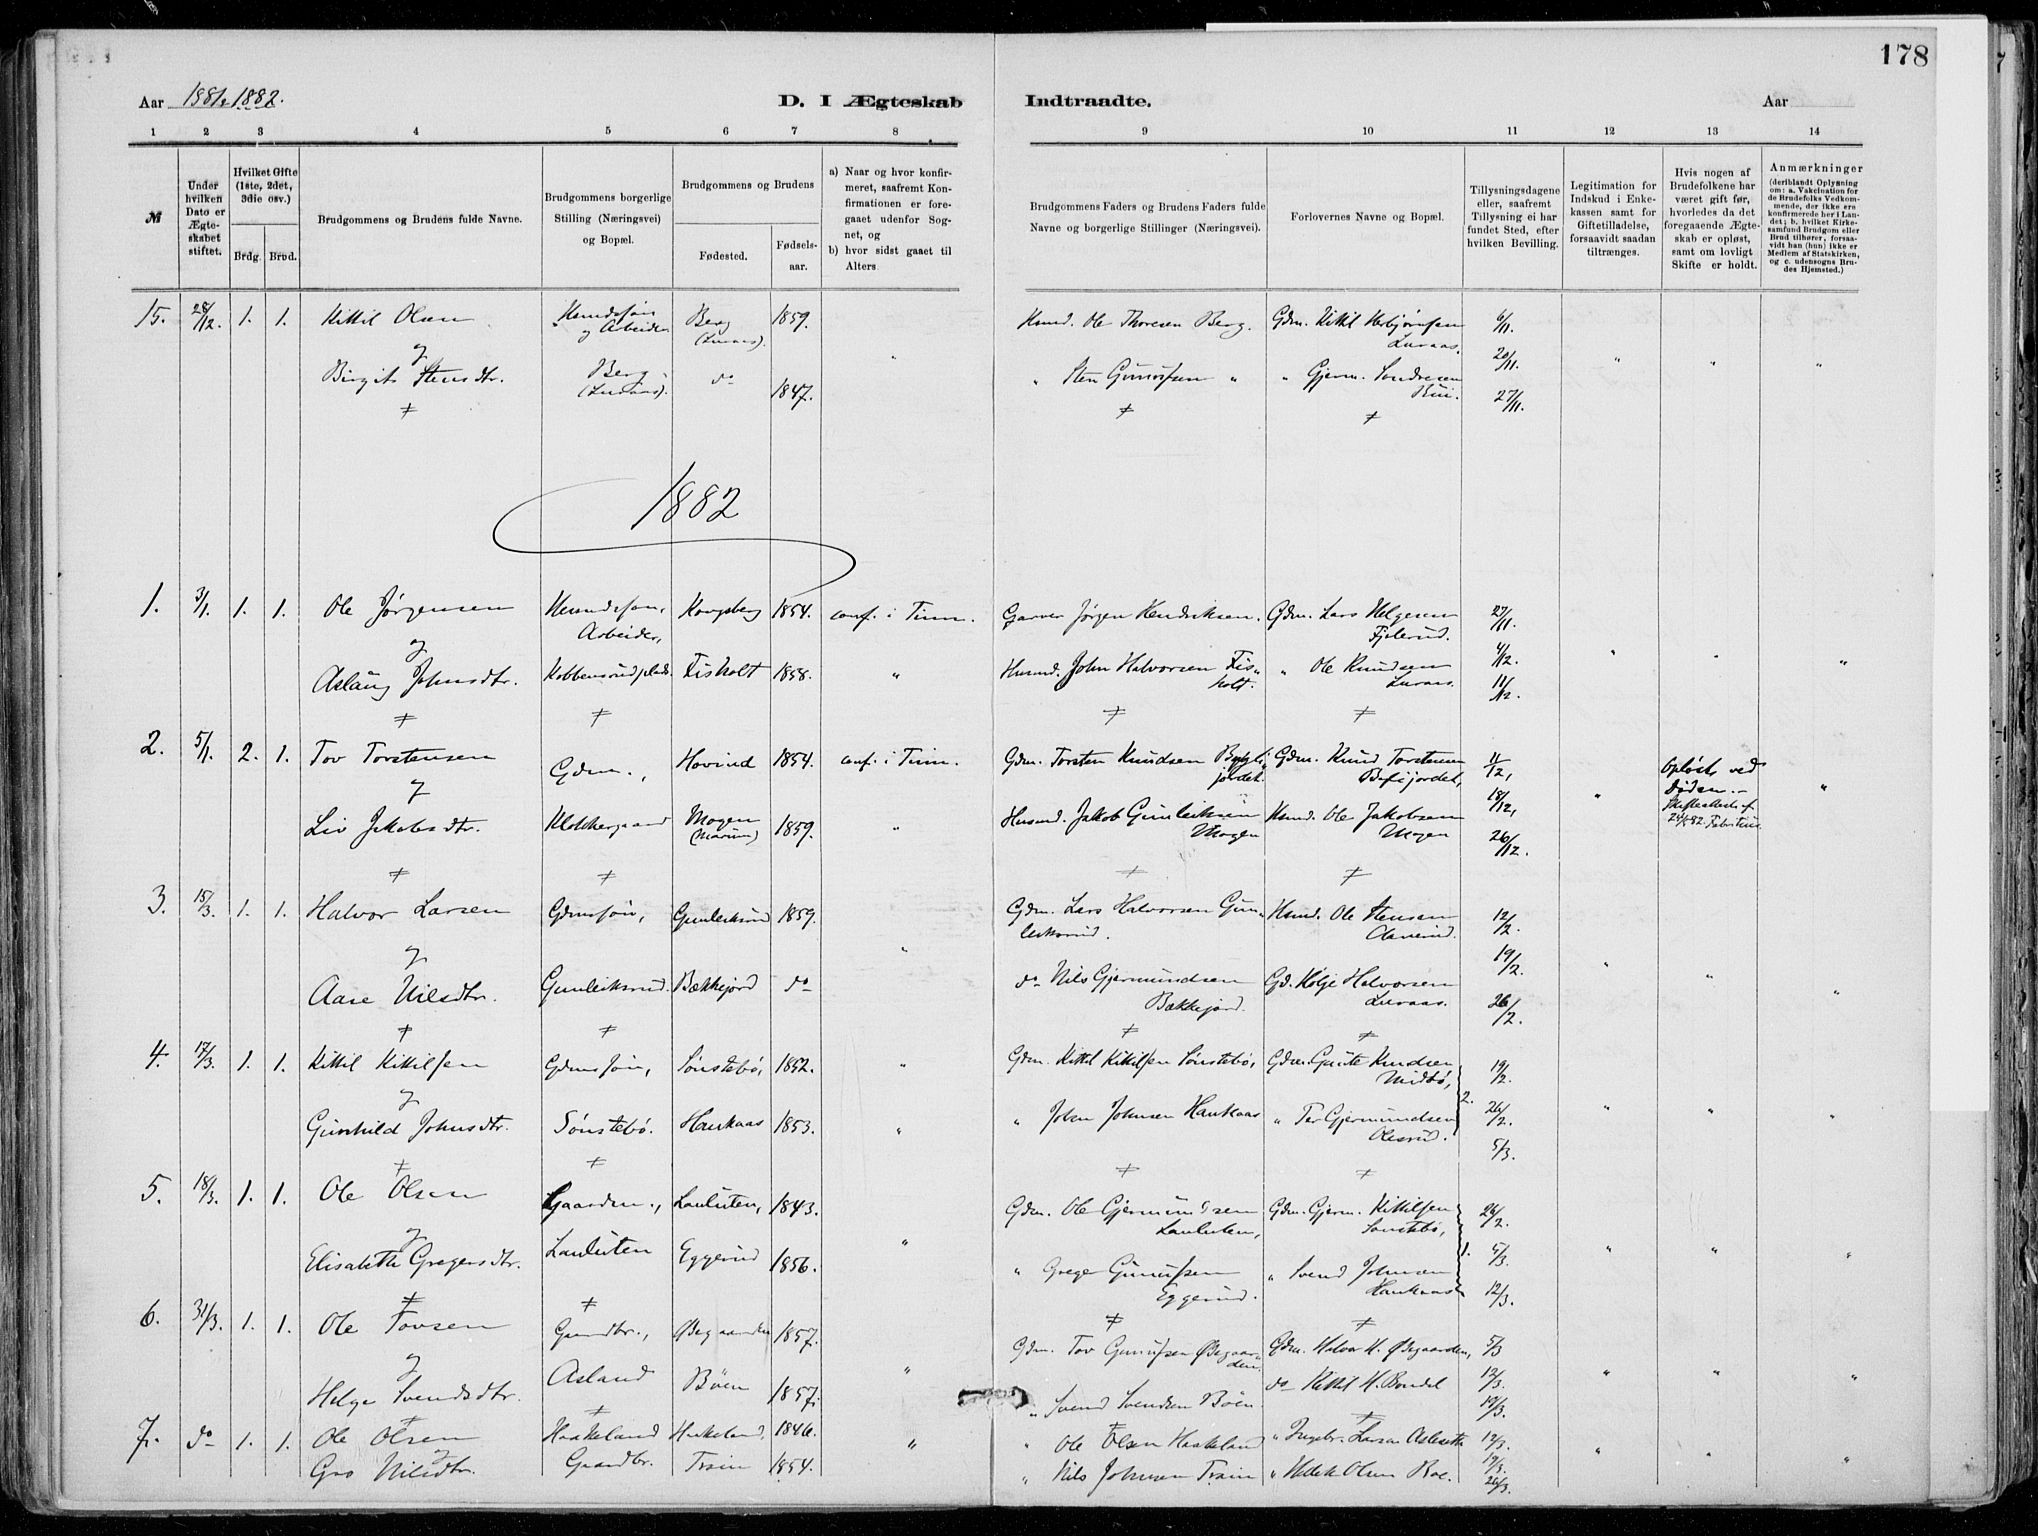 178
Aar 1881 & 1882. D. I Ægteskab Indtraadte. Aar
1 2 3 4 5 6 7 8 9 10 11 12 13 14
№
Under hvilken Dato er Ægteskabet stiftet.
Hvilket Gifte (1ste, 2det, 3die osv.)
Brdg. Brud.
Brudgommens og Brudens fulde Navne.
Brudgommens borgerlige Stilling (Næringsvei) og Bopæl.
Brudgommens og Brudens
Fødested.
Fødselsaar.
a) Naar og hvor konfirmeret, saafremt Konfirmationen er foregaaet udenfor Sognet, og
b) hvor sidst gaaet til Alters
Brudgommens Faders og Brudens Faders fulde Navne og borgerlige Stillinger (Næringsvei).
Forlovernes Navne og Bopæl.
Tillysningsdagene eller, saafremt Tillysning ei har fundet Sted, efter hvilken Bevilling.
Legitimation for Indskud i Enkekassen samt for Giftetilladelse, forsaavidt saadan tiltrænges.
Hvis nogen af Brudefolkene har været gift før, hvorledes da det foregaaende Ægteskab er opløst, samt om lovligt Skifte er holdt.
Anmærkninger (deriblandt Oplysning om: a. Vakcination for de Brudefolks Vedkommende, der ikke ere konfirmerede her i Landet; b. hvilket Kirkesamfund Brudgom eller Brud tilhører, forsaavidt han (hun) ikke er Medlem af Statskirken, og c. udensogns Brudes Hjemsted.)
15. 28/12. 1. 1. Kittil Olsen Husmdsøn Berg 1859. Husmd. Ole Thoresen Berg. Gdm. Kittil Herbjørnsen 6/11.
og og Arbeider (Luraas). Luraas. 20/11.
Birgit Stensdtr. Berg do 1847. " Sten Gunulfsen " " Gjerm. Sondresen
(Luraas). Bui. 27/11.
1882
1. 3/1. 1. 1. Ole Jørgensen Husmdsøn, Kongsberg 1854. conf. i Tinn. Garver Jørgen Hendriksen. Gdm. Lars Helgesen 27/11.
og Arbeider, Fjelerud. 4/12.
Aslaug Johnsdtr. Kobbensrudplads. Fisholt 1858. " Husmd. John Halvorsen Fisholt. " Ole Knudsen Luraas. 11/12.
2. 5/1. 2. 1. Tov Torstensen Gdm., Hovind 1854. conf. i Tinn. Gdm. Torsten Knudsen Gdm. Knud Torstensen 11/12, Opløst ved
og Døden.
Liv Jakobsdtr. Klokkergaard Mogen 1859. " Husmd. Jakob Gunleiksen Mogen Husmd. Ole Jakobsen Mogen 18/12, 26/12.
3. 15/3. 1. 1. Halvor Larsen Gdmssøn, Gunleiksrud 1859. Gdm. Lars Halvorsen Gunleiksrud. Husmd. Ole Stensen 12/2.
og 19/2.
Aase Nilsdtr. Gunleiksrud. Bækkejord do do Nils Gjermundsen Bækkejord. Gd. Hølje Halvorsen Luraas. 26/2.
4. 17/3. 1. 1. Kittil Kittilsen Gdmssøn, Sønstebø, 1852. " Gdm. Kittil Kittilsen Sønstebø, Gdm. Gaute Knudsen Midbø, 19/2.
og 2. 26/2.
Gunhild Johnsdtr. Sønstebø. Haukaas 1853. " " John Johnsen Haukaas " Per Gjermundsen Olesrud. 5/3.
5. 18/3. 1. 1. Ole Olsen Gaardm., Lauluten, 1843. Gdm. Ole Gjermundsen Lauluten, Gdm. Gjerm. Kittilsen Sønstebø, 26/2.
og 1. 5/3.
Elisabeth Gregersdtr. Lauluten Eggerud 1856. " " Greger Gunulfsen Eggerud. " Svend Johnsen Haukaas 12/3.
6. 31/3. 1. 1. Ole Tovsen Gaardbr., Øvegaarden 1857. Gdm. Tov Gunulfsen Øvegaarden. Gdm. Halvor H. Øvegaarden, 5/3
og
Helge Svendsdtr. Asland Bøen 1857. " " Svend Svendsen Bøen. do Kittil H. Bondal 12/3. 19/3.
7. do 1. 1. Ole Olsen Haakeland Haakeland, 1846. " " Ole Olsen Haakeland " Ingebr. Larsen 12/3.
og 19/3.
Gro Nilsdtr. Gaardbr. Traen 1854. " Nils Johnsen Traen " Olsen Boe. 26/3.